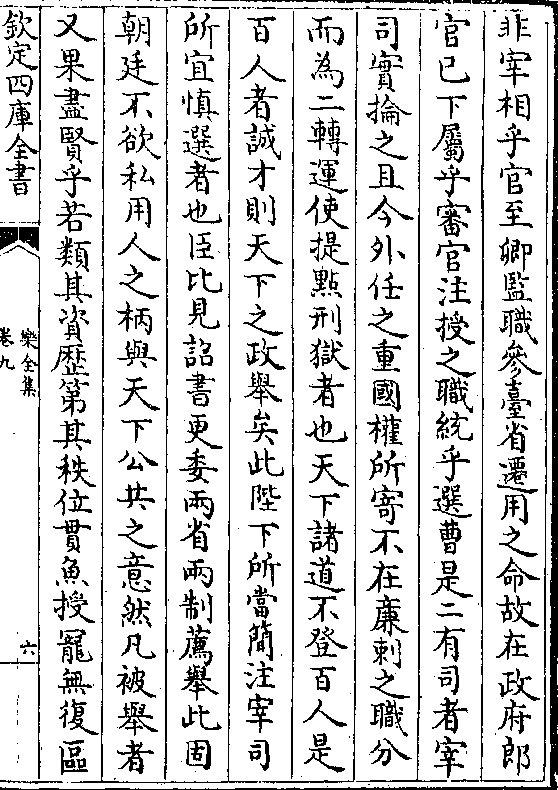 非宰相乎官至卿監職參臺省遷用之命故在政府郎
官已下屬乎審官注授之職統乎選曹是二有司者宰
司實掄之且今外任之重國權所寄不在亷刺之職分
而為二轉運使提點刑獄者也天下諸道不登百人是
百人者誠才則天下之政舉矣此陛下所當簡注宰司
所宜慎選者也臣比見詔書更委兩省兩制薦舉此固
朝廷不欲私用人之柄與天下公共之意然凡被舉者
又果盡賢乎若類其資歴第其秩位貫魚授寵無復區
欽定四庫全書
樂全集
卷九
六